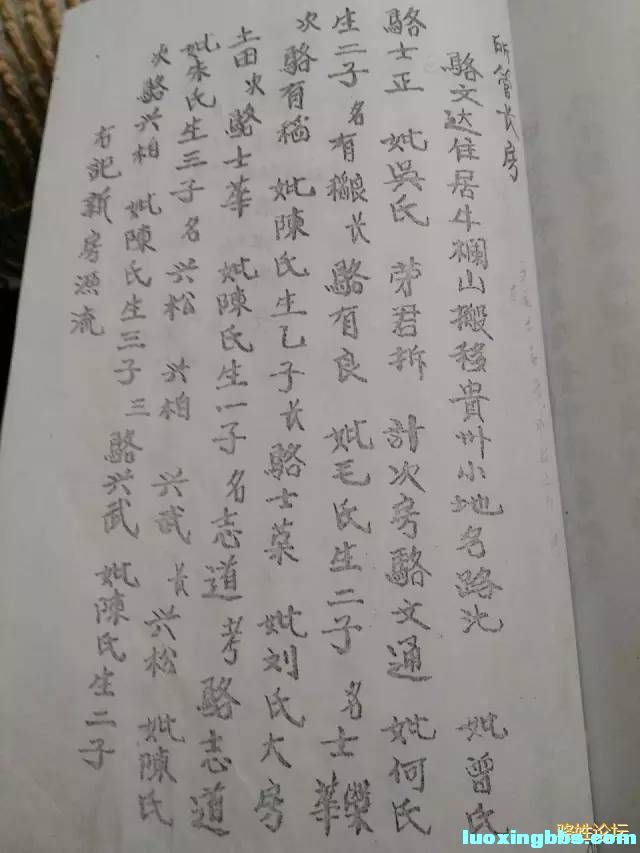 所管长房
駱文达住居牛欄山搬移貴州小地名路沈 妣曾氏
駱士正 妣吳氏 茅君拆 計次房駱文通 妣何氏
生二子 名有稲良 长駱有良 妣毛氏生二子 名士榮華
次駱有稲 妣陳氏生乙子 长駱士荣 妣刘氏大房
土田次駱士華 妣陳氏生一子 名志道 考駱志道
妣朱氏生三子 名兴松 兴柏 兴武 长兴松 妣陳氏
次駱兴柏 妣陳氏生三子 三駱兴武 妣陳氏生二子
右記新房源流
駱姓论坛
luoxingbbs.com